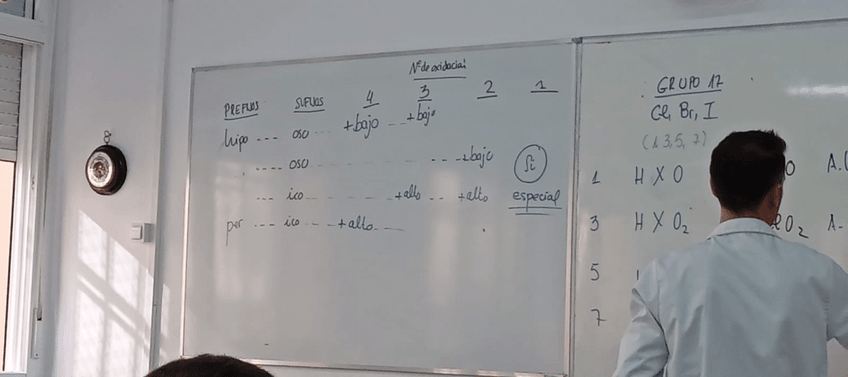 Nº de oxidación
PREFIJOS SUFIJOS 4 3 2 1
hipo --- oso --- +bajo --- +bajo
---- oso --- --- +bajo
--- ico --- +alto -- +alto especial
per --- ico --- +alto ---
GRUPO 17
Cl, Br, I
(1, 3, 5, 7)
1 H X O O A.
3 H X O2 O2 A-
5
7